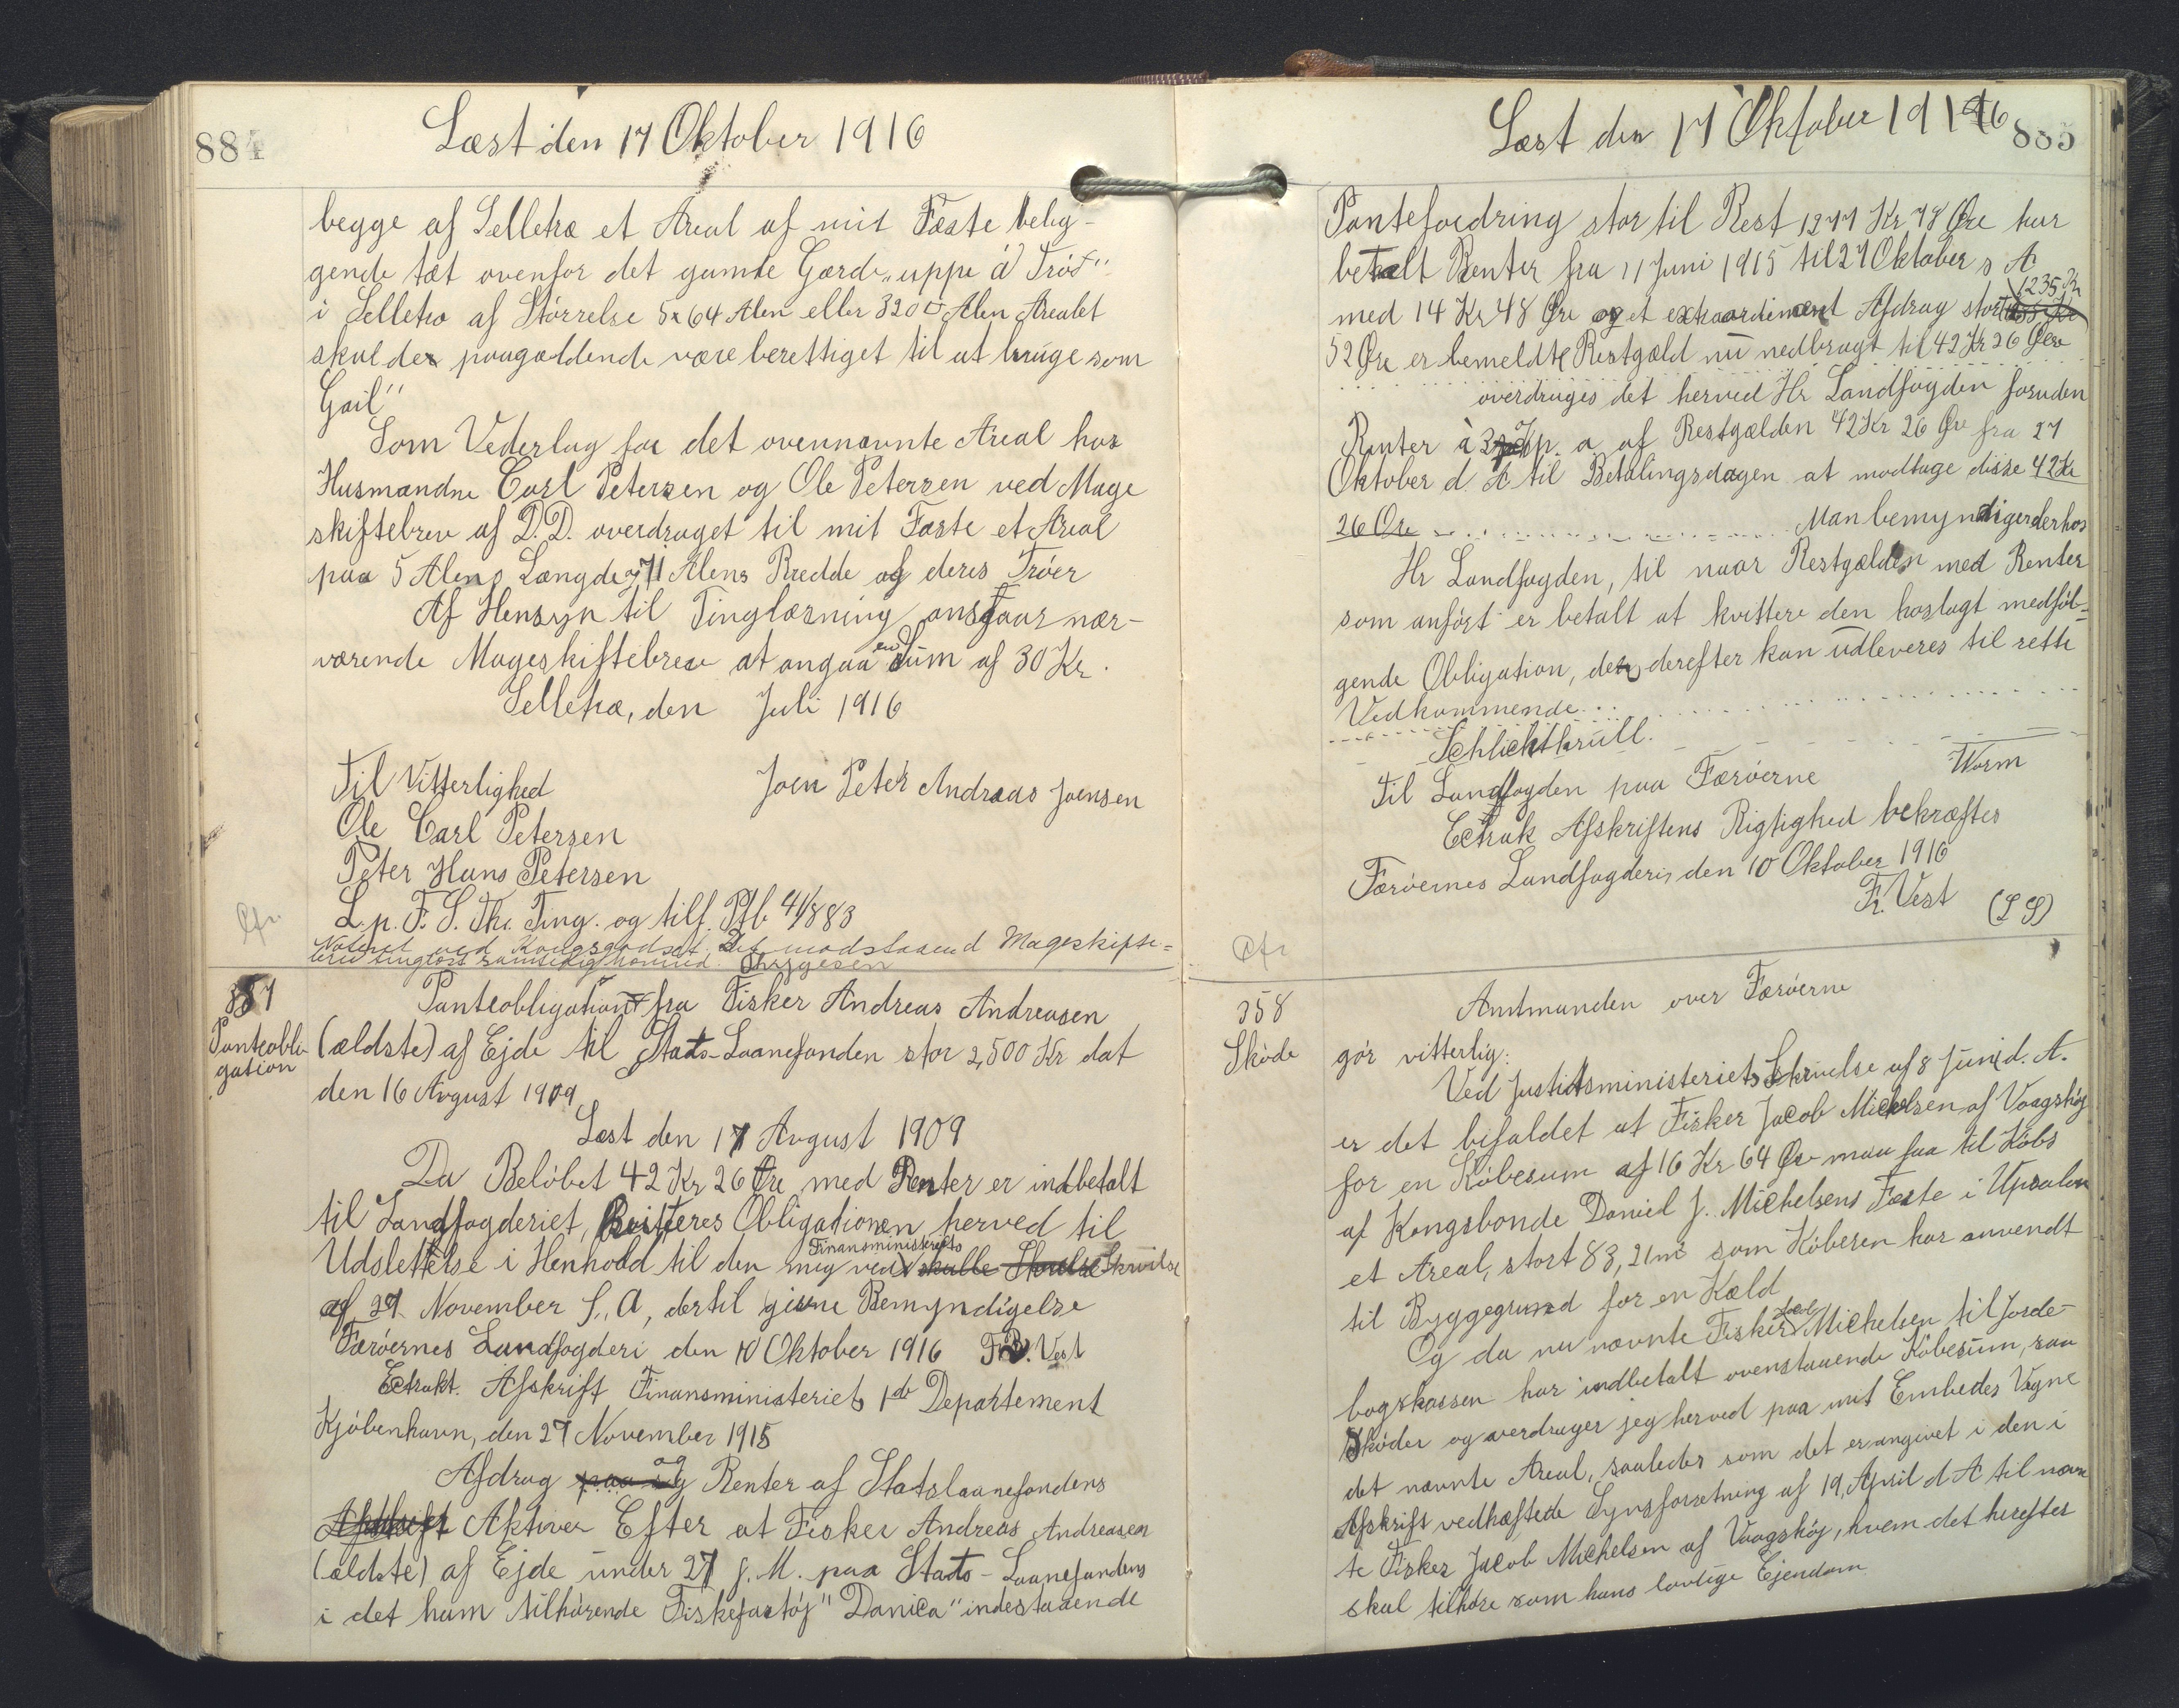 884
Læst den 17 Oktober 1916
begge af Selletræ et Areal af mit Fæste belig-
gende tæt ovenfor det gamle Gærde „uppi á Trøð"
i Selletræ af Størrelse 5x64 Alen eller 320 □ Alen Arealet
skal der paagældende være berettiget til at bruge som
Gail"
Som Vederlag for det ovennævnte Areal har
Husmændne Carl Petersen og Ole Petersen ved Mage
skiftebrev af D.D. overdraget til mit Fæste et Areal
paa 5 Alens Længde og 71 Alens Bredde af deres Trøer
Af Hensyn til Tinglæsning ansaar nær-
værende Mageskiftebrev at angaa en Sum af 30 Kr.
Selletræ, den Juli 1916
Til Vitterlighed
Joen Peter Andreas Joensen
Ole Carl Petersen
Peter Hans Petersen
L. p. F. S. Th. Ting. og tilf. Ptb 41/883
Cfr
Noteret ved Kongsgodset. Det modstaaend Mageskifte=
brev tinglæst samtidig hermed.
357
Panteobli-
gation
Panteobligation fra Fisker Andreas Andreasen
(ældste) af Ejde til Stats-Laanefonden stor 2,500 Kr dat
den 16 Avgust 1909
Læst den 17 Avgust 1909
Da Beløbet 42 Kr 26 Øre med Renter er indbetalt
til Landfogderiet, kvitteres Obligationen herved til
Udslettelse i Henhold til den mig ved Finansministeriets skulle Skrivelse Skrivelse
af 27 November f. A, dertil givne Bemyndigelse
Færøernes Landfogderi den 10 Oktober 1916 Fr. Vest
Extrakt. Afskrift Finansministeriets 1ste Departement
Kjøbenhavn, den 27 November 1915
Afdrag og Renter af Statslaanefondens
Aktiver Efter at Fisker Andreas Andreasen
(ældste) af Ejde under 27 f. M. paa Stats-Laanefondens
i det ham tilhørende Fiskefartøj "Danica" indestaaende
885
Læst den 17 Oktober 1916
Pantefordring stor til Rest 1277 Kr 78 Øre har
betalt Renter fra 11 Juni 1915 til 27 Oktober s A
med 14 Kr 48 Øre og et extraordinært Afdrag stort 1235 Kr
52 Øre er bemeldte Restgæld nu nedbragt til 42 Kr 26 Øre
overdrages det herved Hr Landfogden foruden
Renter à 3 % p. a af Restgælden 42 Kr 26 Øre fra 27
Oktober d. A til Betalingsdagen at modtage disse 42 Kr
26 Øre ............ Man bemyndiger derhos
Hr Landfogden, til naar Restgælden med Renter
som anført er betalt at kvittere den hoslagt medføl-
gende Obligation, der derefter kan udleveres til rette
Vedkommende...
Schlichtkrull.
Worm
Til Landfogden paa Færøerne
Extrak Afskriftens Rigtighed bekræftes
Færøernes Landfogderi, den 10 Oktober 1916
Fr. Vest (L S)
Cfr
358
Skøde
Amtmanden over Færøerne
gør vitterlig:
Ved Justitsministeriets Skrivelse af 8 Juni d. A.
er det bifaldet at Fisker Jacob Michelsen af Vaagshøj
for en Købesum af 16 Kr 64 Øre maa faa til Købs
af Kongsbonde Daniel J. Michelsens Fæste i Upsalen
et Areal, stort 83,21 m² som Køberen har anvendt
til Byggegrund for en Kæld
Og da nu nævnte Fisker Jacob Michelsen til Jorde-
bogskassen har indbetalt ovenstaaende Købesum, saa
skøder og overdrager jeg herved paa mit Embedes Vegne
det nævnte Areal, saaledes som det er angivet i den i
Afskrift vedhæftede Synsforretning af 19. April d A til nævn
te Fisker Jacob Michelsen af Vaagshøj, hvem det herefter
skal tilhøre som hans lovlige Ejendom